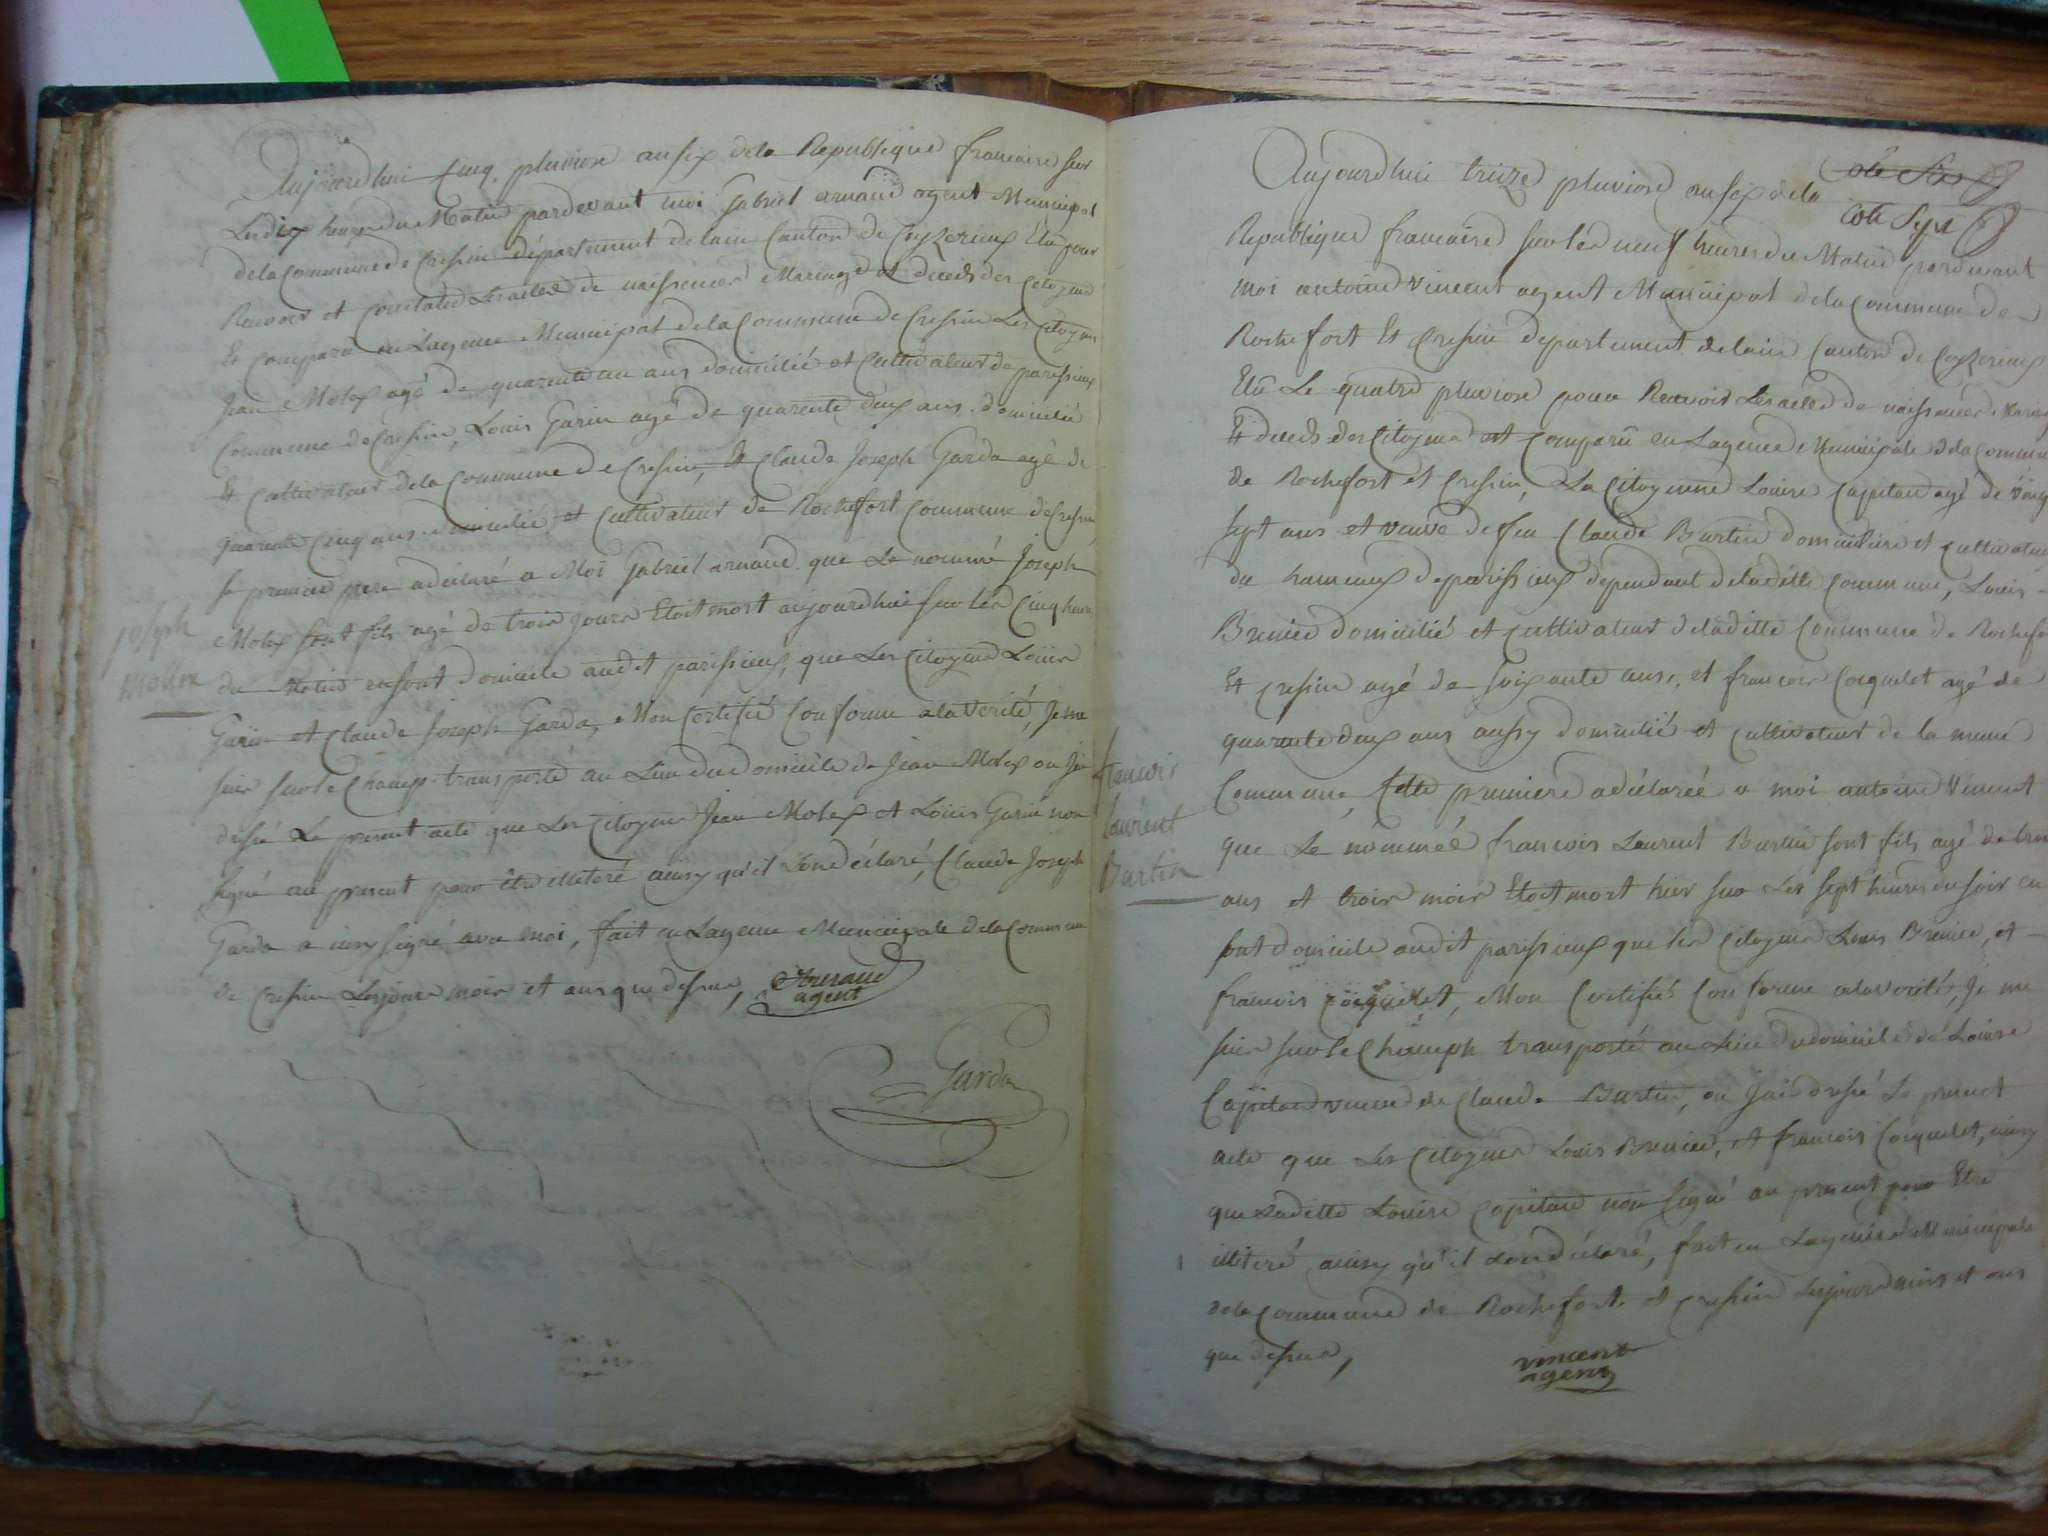 Aujourdhui Cinq pluviose an six de la Republique francaise sur
Les dix heures du Matin pardevant moi Gabriel arnaud agent Municipal
de la Commune de Cressin département de lain Canton de Ceyzerieux Elu pour
Recevoir et Constater Les actes de naissences Mariage et deceds des Citoyens
Et Comparu en Lagence Municipal de la Commune de Cressin Les Citoyens
Jean Molex agé de quarente un ans domicilié et Cultivateur de parissieux
Commune de Cressin, Louis Garin agé de quarente deux ans domicilié
Et Cultivateur de la Commune de Cressin, Et Claude Joseph Garda agé de
quarente Cinq ans domicilié et Cultivateur de Rochefort Commune de Cressin
Le premier pere a déclaré a Moi Gabriel arnaud que Le nommé Joseph
Molex sont fils agé de trois jours Etoit mort aujourdhui sur les Cinq heures
du Matin en sont domicile audit parissieux, que Les Citoyens Louis
Garin et Claude Joseph Garda, Mon Certifié Conforme a la Verité, Je me
suis sur le Champ transporté au Lieu du domicile de Jean Molex ou Jai
dréssé Le present acte que Les Citoyens Jean Molex et Louis Garin non
signé au present pour être illiteré ainsy qu'il Lon déclaré, Claude Joseph
Garda a signé avec moi, fait en Lagence Municipale de la Commune
de Cressin Les jours mois et ans que dessus, Arnaud
agent
Garda
joseph
mollex
Cote Six
Cote Sept
Aujourdhui treize pluviose an six de la
Republique francaise sur les neuf heures du Matin pardevant
moi antoine Vincent agent Municipal de la Commune de
Rochefort Et Cressin departement de lain Canton de Ceyzerieux
Elu Le quatre pluviose pour Recevoir Les actes de naissences Mariage
Et deceds des Citoyens et Comparu en Lagence Municipale de la Commune
de Rochefort et Cressin, La Citoyenne Louise Capitan agé de vingt
sept ans et veuve de feu Claude Burtin domiciliere et Cultivateur
du hameaux de parissieux dependant de ladite Commune, Louis
Brenier domicilié et Cultivateur de laditte Commune de Rochefort
Et Cressin agé de soixante ans, et francois Coiquelet agé de
quarente deux ans aussy domicilié et Cultivateur de la meme
Commune, Cette premiere a déclarée a moi antoine Vincent
que Le nommée francois Laurent Burtin sont fils agé de trois
ans et trois mois Etoit mort hier sur Les sept heures du soir en
sont domicile audit parissieux que les Citoyens Louis Brenier, et
francois Coiquelet, Mon Certifiés Conforme a la verité, Je me
suis sur le Champh transporté au Lieu du domicile de Louise
Capitan veuve de Claude Burtin, ou Jai dréssé Le present
acte que Les Citoyens Louis Brenier, et francois Coiquelet, ainsy
que Laditte Louise Capitan non signé au present pour Etre
illiteré ainsy qu'il Lon déclaré, fait en Lagence Municipale
de la Commune de Rochefort et Cressin Les jours mois et ans
que dessus,
vincent
agent
francois
Laurent
Burtin